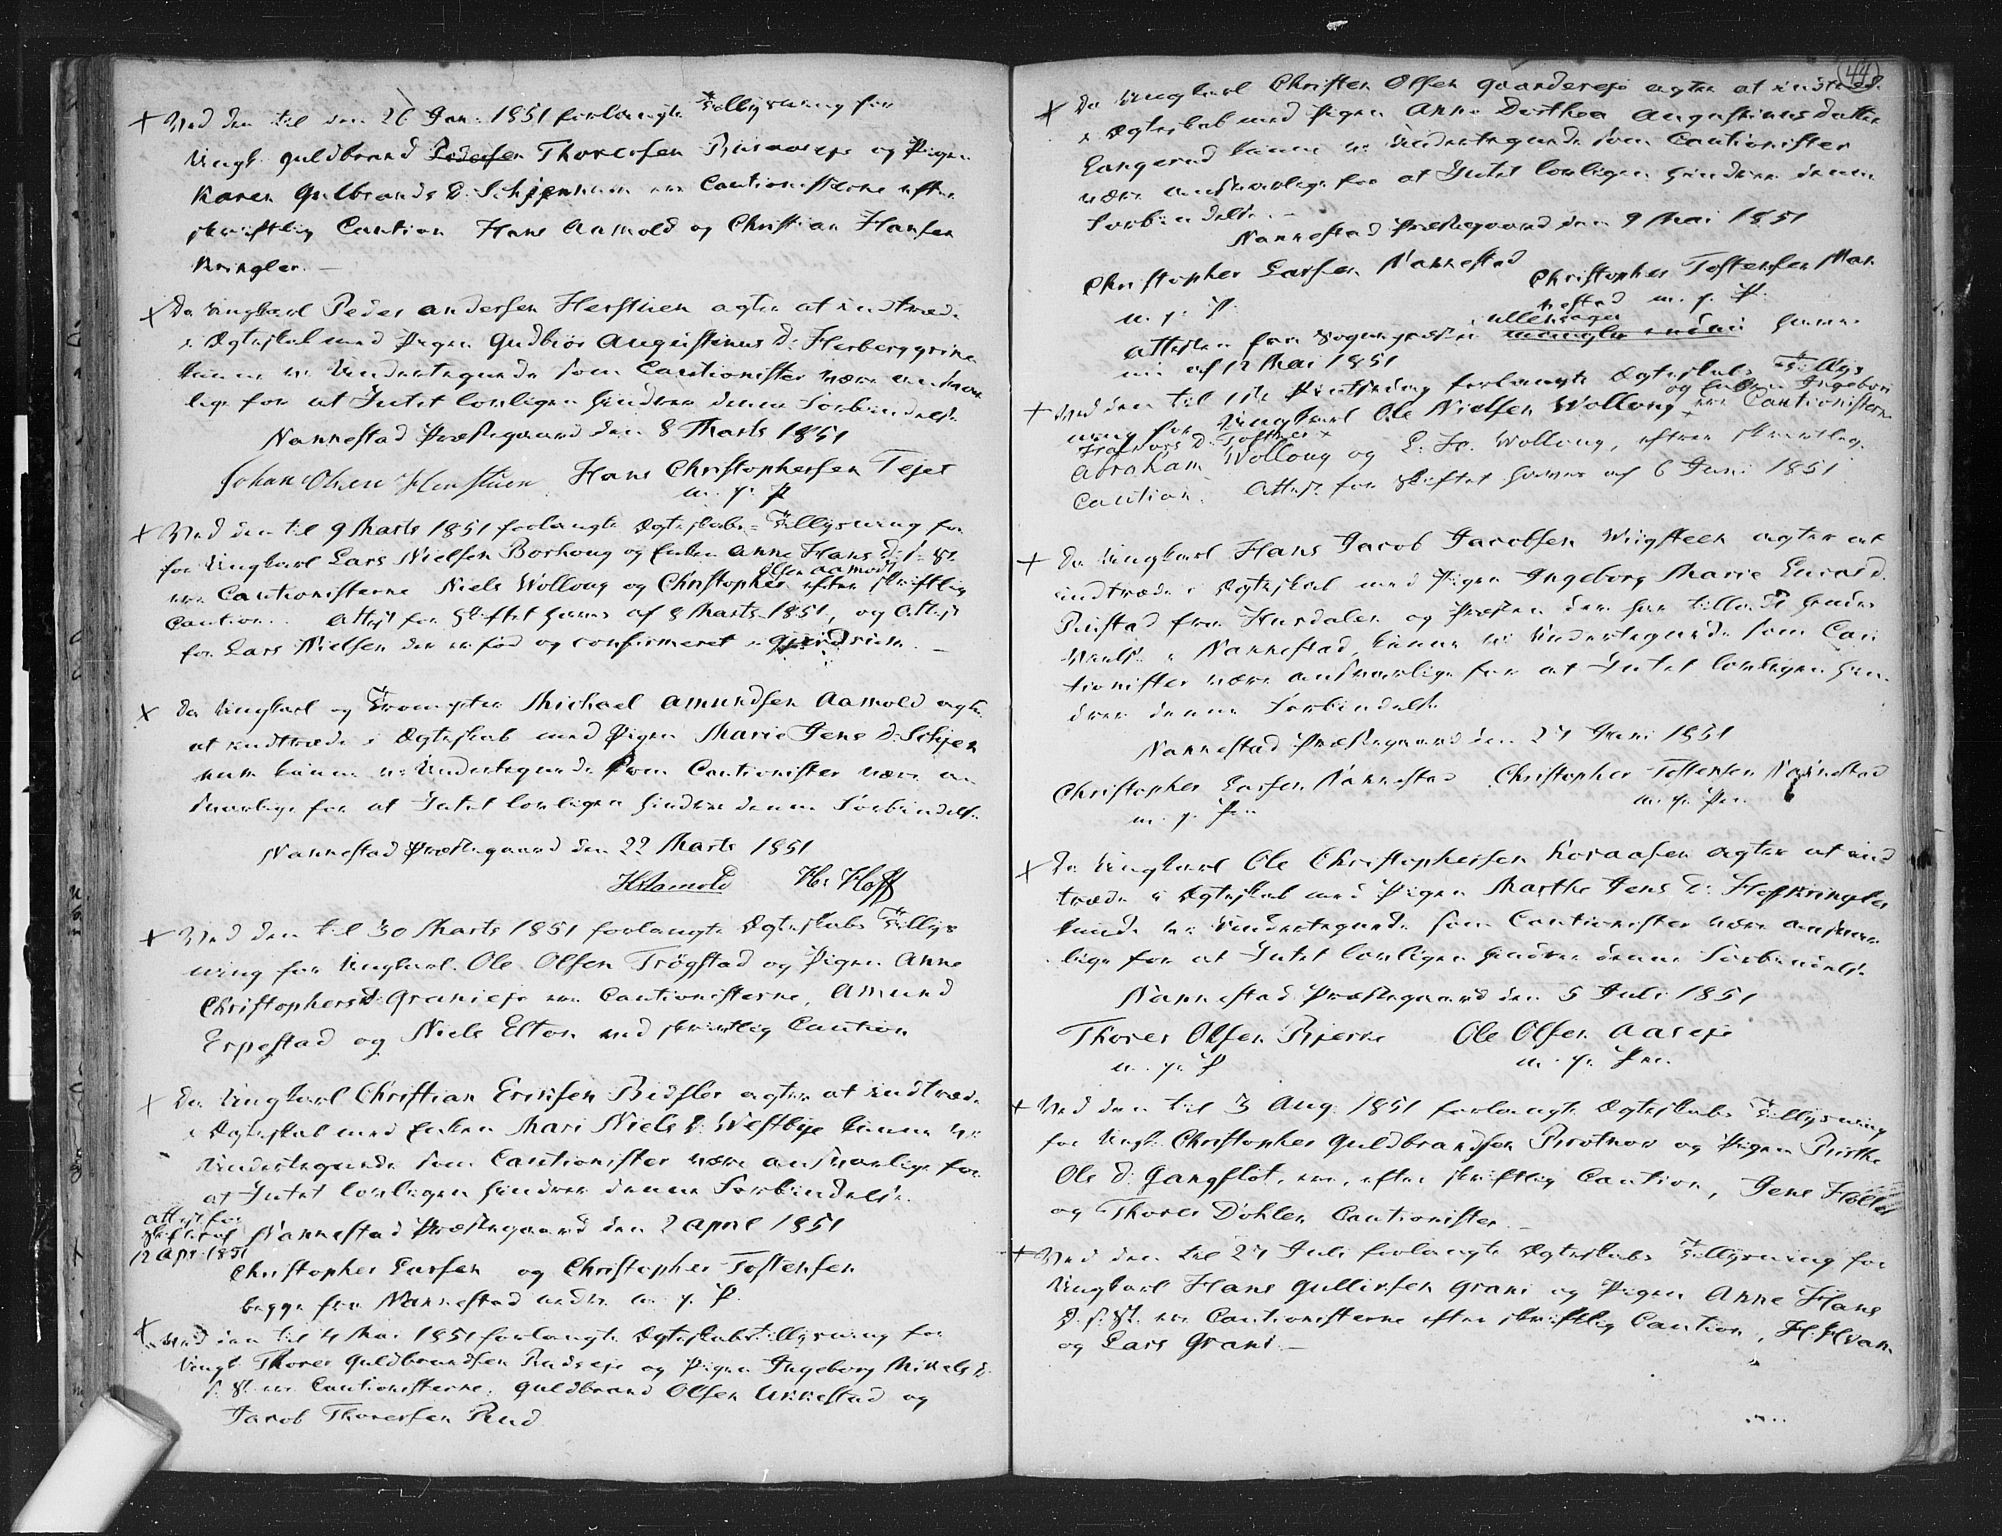 + Ved den til den 26 Jan: 1851 forlangte Tillysning for
Ungk: Guldbrand Pedersen Thoresen og Pigen
Karen Gulbrands D: Schjennum ere Cautionisterne efter
skriftlig Caution Hans Aamold og Christian Hansen
Kringler. —
x Da Ungkarl Peder Andersen Herstuen agter at indtræde
i Ægteskab med Pigen Gudbiør Augustinus D: Herberggrine
kunne vi Undertegnede som Cautionister være ansvar
lige for at Intet lovligen hindrer denne Forbindelse.
Nannestad Præstegaard den 8 Marts 1851
Johan Olsen Henstuen Hans Christophersen Tejet
m. f. P
+ Ved den til 9 Marts 1851 forlangte Ægteskabs-Tillysning for
for Ungkarl Lars Nielsen Borhoug og Enken Anne Hans D: f: St.
Olsen Aamodt
ere Cautionisterne Niels Wolloug og Christopher efter skriftlig
Caution. Attest fra Skiftet haves af 8 Marts 1851, og Attest
for Lars Nielsen der er fød og confirmeret i Gjerdrum. —
x Da Ungkarl og Trompeter Michael Amundsen Aamold agter
at indtræde i Ægteskab med Pigen Marie Jens D: Schjen
num kunne vi Undertegnede som Cautionister være an
svarlige for at Intet lovligen hindrer denne Forbindelse.
Nannestad Præstegaard den 22 Marts 1851
HAamold Hs: Hoff
+ Ved den til 30 Marts 1851 forlangte Ægteskabs Tillys
ning for Ungkarl Ole Olsen Trøgstad og Pigen Anne
Christophersd: Granieje ere Cautionisterne, Amund
Erpestad og Niels Elton ved skriftlig Caution
x Da Ungkarl Christian Eriksen agter at indtræde
i Ægteskab med Enken Mari Niels D: Westbye kunne vi
Undertegnede som Cautionister være ansvarlige for
at Intet lovligen hindrer denne Forbindelse.
Attest fra
Skiftet af
12 Apr: 1851
Nannestad Præstegaard den 2 April 1851
Christopher Larsen og Christopher Tostensen
begge fra Nannestad m. f. P.
x Ved den til 4 Mai 1851 forlangte Ægteskabstillysning for
Ungk: Thores Guldbrandsen Rudseje og Pigen Ingeborg Mikels D:
f. St. ere Cautionisterne: Guldbrand Olsen Ukkestad og
Jacob Thoresen Rud
44
x Da Ungkarl Christen Olsen Quandereje agter at indtræde
i Ægteskab med Pigen Anne Dorthea Augustinusdatter
Langerud kunne vi Undertegnede som Cautionister
være ansvarlige for at Intet lovligen hindrer denne
Forbindelse. —
Nannestad Præstegaard den 9 Mai 1851
Christopher Larsen Nannestad Christopher Tostensen Nan
m. f. P. nestad m. f. P.
Ullensager
Attesten fra Sognepræsten mangler endnu haves
nu af 12 Mai 1851
+ Ved den til 1ste Pintsedag forlangte Ægteskabs Tillys
og Enken Ingebor
ning for Ungkarl Ole Nielsen Wolloug x ere Cautionisterne
Abraham Wolloug og L. H. Wolloug, efter skriftlig
Caution. Attest fra Skiftet haves af 6 Juni 1851
+ Da Ungkarl Hans Jacob Jacobsen Wiigsteen agter at
indtræde i Ægteskab med Pigen Ingeborg Marie
fra Hurdalen og Præsten der har tilladt hendes
Vielse i Nannestad, kunne vi Undertegnede som Cau
tionister være ansvarlige for at Intet lovligen hin
drer denne Forbindelse.
Nannestad Præstegaard den 27 Juni 1851
Christopher Larsen Nannestad Christopher Tostensen Nannestad
m. f. Pen m. f. Pen.
x Da Ungkarl Ole Christophersen Koraasen agter at ind
træde i Ægteskab med Pigen Marthe Jens D: Hoffkringler
kunde vi Undertegnede som Cautionister være ansvar
lige for at Intet lovligen hindrer denne Forbindelse
Nannestad Præstegaard den 5 Juli 1851
Thores Olsen Bjerke Ole Olsen Aaseje
m. f. P m. f. Pen.
+ Ved den til 3 Aug: 1851 forlangte Ægteskabs Tillysning
for Ungk: Christopher Guldbrandsen og Pigen Birthe
Ole D: Gangflot, ere, efter skriftlig Caution, Jens Holter
og Thores Døhlen Cautionister. —
+ Ved den til 27 Juli forlangte Ægteskabs Tillysning for
Ungkarl Hans Gulliksen Grani og Pigen Anne Hans
D. f. St. ere Cautionisterne efter skriftlig Caution,
og Lars Grani. —